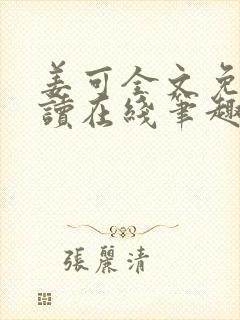 姜可全文免
讀在綫筆趣
張麗清